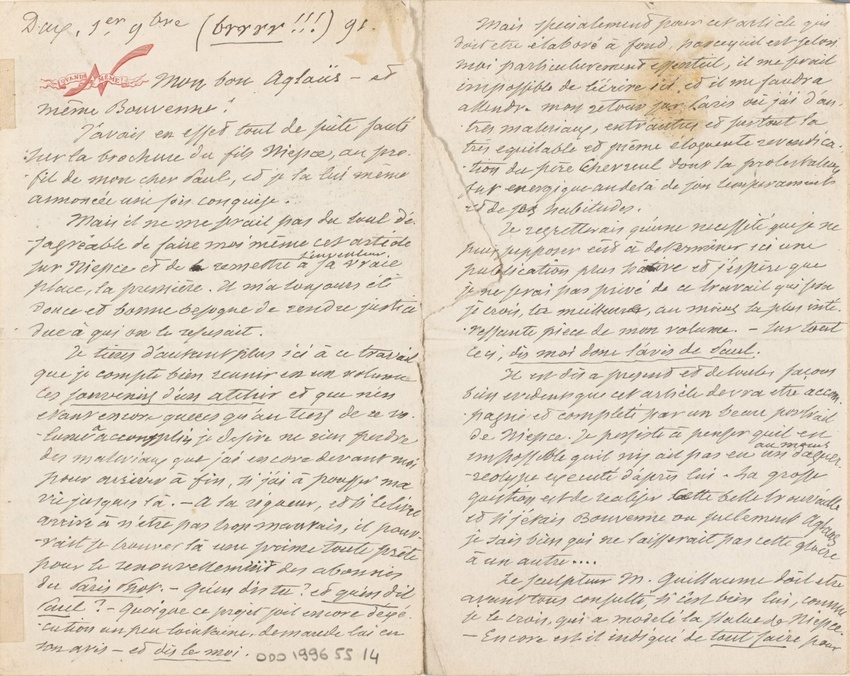 Dax, 1er 9bre (brrrr !!!) 91.
QUAND MÊME !
Mon bon Aglaüs – et
même Bouvenne !
J'avais en effet tout de suite sauté
sur la brochure du fils Niepce, au pro-
fil de mon cher Paul, et je la lui même
annoncée une fois conquise.
Mais il ne me serait pas du tout dé-
sagréable de faire moi même cet article
sur Niepce et de le remettre à sa vraie
place, la première. Il m'a toujours été
douce et bonne besogne de rendre justice
due à qui on la refusait.
Je tiens d'autant plus ici à ce travail
que je compte bien réunir en un volume
ces souvenirs d'un atelier et que n'en
étant encore guères qu'au tiers de ce vo-
lume à accomplir, je désire ne rien perdre
des matériaux que j'ai encore devant moi
pour arriver à fin, si j'ai à pousser ma
vie jusques là. – A la rigueur, et si le livre
arrive à n'être pas trop mauvais, il pour-
rait se trouver là une prime toute prête
pour le renouvellement des abonnés
du Paris Phot. – Qu'en dis tu ? et qu'en dit
Paul ? – Quoique ce projet soit encore d'exé-
cution un peu lointaine, demande lui en
son avis – et dis le moi.
ODO 1996 55 14
Mais spécialement pour cet article qui
doit être élaboré à fond, parcequ'il est selon
moi particulièrement essentiel, il me serait
impossible de l'écrire ici, et il me faudra
attendre mon retour sur Paris où j'ai d'au-
tres matériaux, entr'autres et surtout la
très équitable et même éloquente revendica-
tion du père Chevreul dont la protestation
fut énergique au delà de son tempérament
et de ses habitudes.
Je regretterais qu'une nécessité que je ne
puis supposer eût à déterminer ici une
publication plus hâtive et j'espère que
je ne serai pas privé de ce travail qui sera
je crois, la meilleure, au moins la plus inté-
ressante pièce de mon volume. – Sur tout
ceci, dis moi donc l'avis de Paul.
Il est dès à présent et de toutes façons
bien évident que cet article devra être accom-
pagné et complété par un beau portrait
de Niepce. Je persiste à penser qu'il est
impossible qu'il n'y ait pas eu au moins un daguer-
réotype exécuté d'après lui. La grosse
question est de réaliser cette belle trouvaille
et si j'étais Bouvenne ou seulement Aglaüs
je sais bien qui ne laisserait pas cette gloire
à un autre ....
Le sculpteur M. Guillaume doit être
avant tous consulté, si c'est bien lui, comme
je le crois, qui a modelé la statue de Niepce.
– Encore est il indiqué de tout faire pour